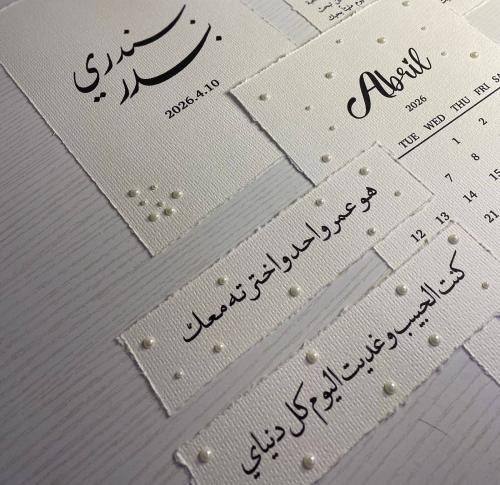 سندري
بندر
2026.4.10
Abril
2026
TUE WED THU FRI
1 2
7 8
12 13 14 15
21
هو عمر واحد واخترته معك
كنت الحبيب وغديت اليوم كل دنياي